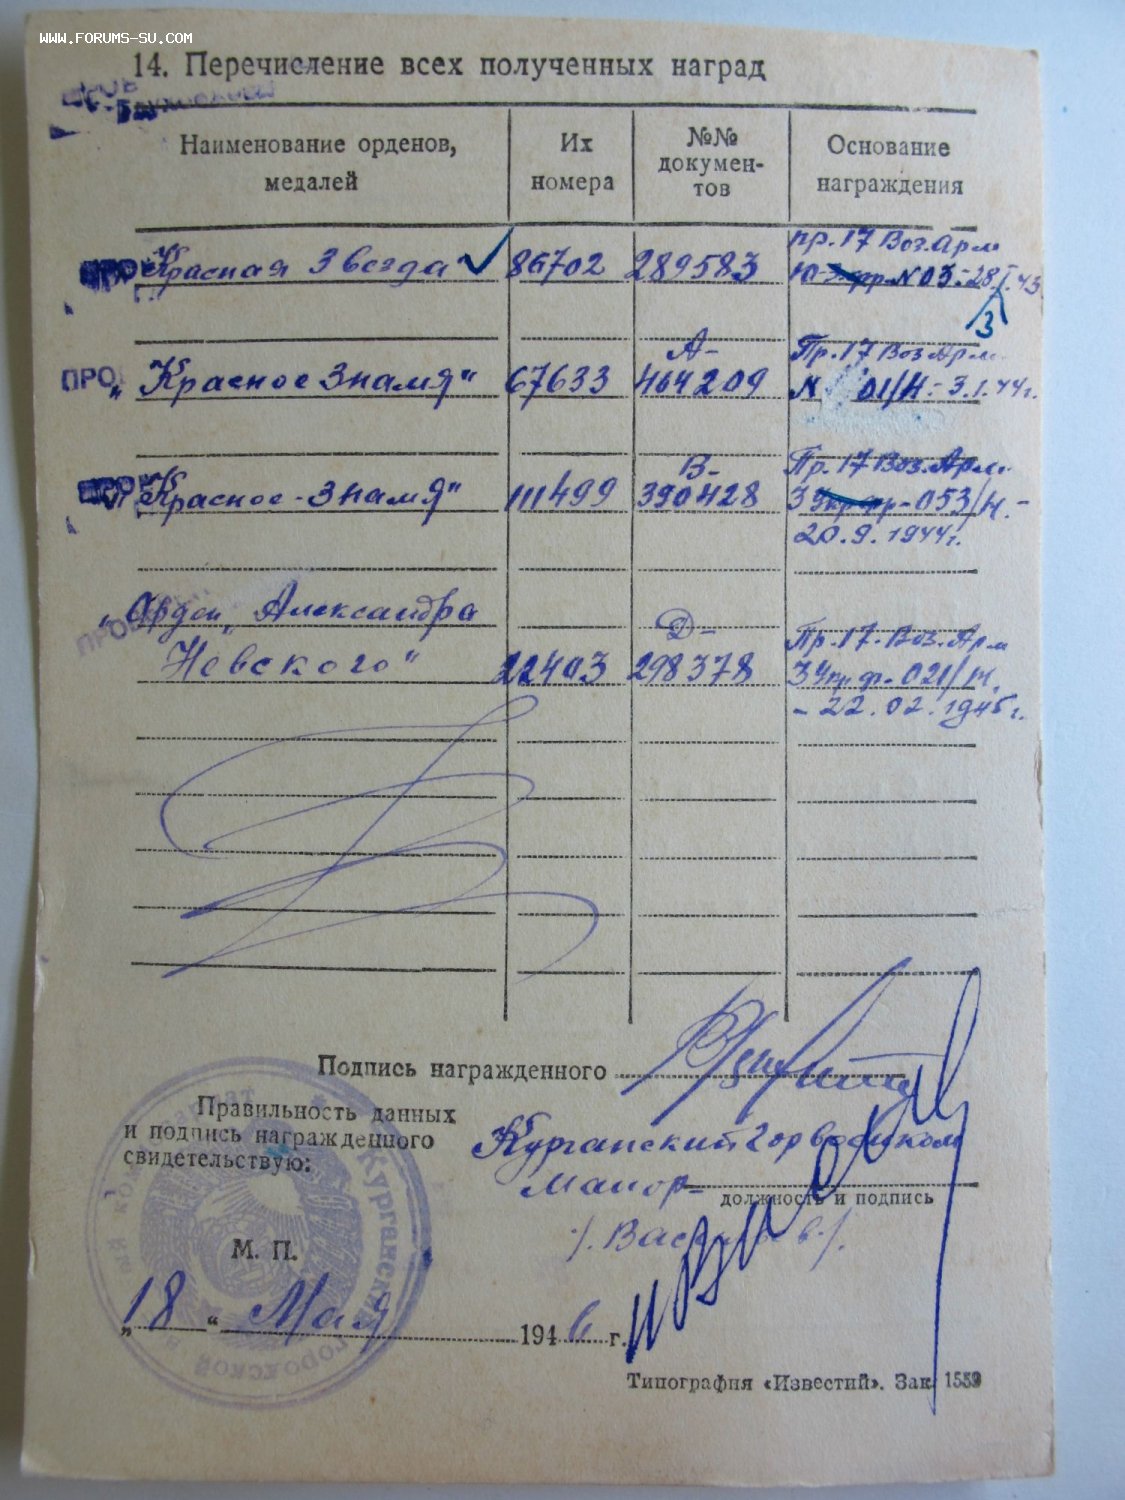 WWW.FORUMS-SU.COM
14. Перечисление всех полученных наград
Наименование орденов, медалей
Их номера
№№ докумен-тов
Основание награждения
ПРО Красная Звезда 86702 289583 пр. 17 Воз. Арм
№ 03 - 28.I.43
3
ПРО „Красное Знамя" 67633 А-464209 Пр. 17 Воз. Арм.
№ 01/Н. - 3.1.44г.
ПРО „Красное-Знамя" 111499 В-390428 Пр. 17 Воз. Арм.
3 Укр фр - 053/н. -
20.9.1944г.
„Орден „Александра
Невского" 22403 Д-298378 Пр. 17. Воз. Арм
3 Укр ф. - 021/н.
- 22.02.1945г.
Подпись награжденного
Правильность данных
и подпись награжденного
свидетельствую:
Курганский горвоенком
Майор
должность и подпись
М. П.
„18" Мая 1946 г.
Типография «Известий». Зак. 1559